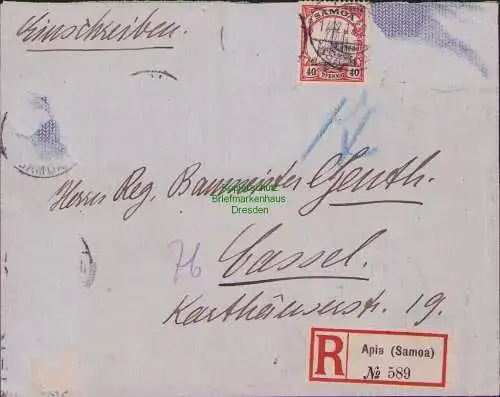 Einschreiben.
SAMOA
40 PFENNIG 40
SAMOA
Herrn Reg. Baumeister Genth.
Kopierschutz
Briefmarkenhaus
Dresden
76
Cassel.
Karthäuserstr. 19.
R
Apia (Samoa)
№ 589